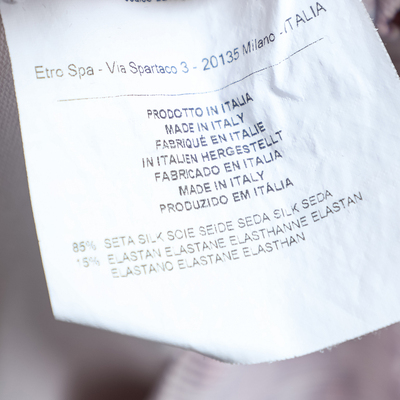 Etro Spa - Via Spartaco 3 - 20135 Milano - ITALIA
PRODOTTO IN ITALIA
MADE IN ITALY
FABRIQUÉ EN ITALIE
IN ITALIEN HERGESTELLT
FABRICADO EN ITALIA
MADE IN ITALY
PRODUZIDO EM ITÁLIA
85% SETA SILK SOIE SEIDE SEDA SILK SEDA
15% ELASTAN ELASTANE ELASTHANNE ELASTAN
ELASTANO ELASTANE ELASTHAN